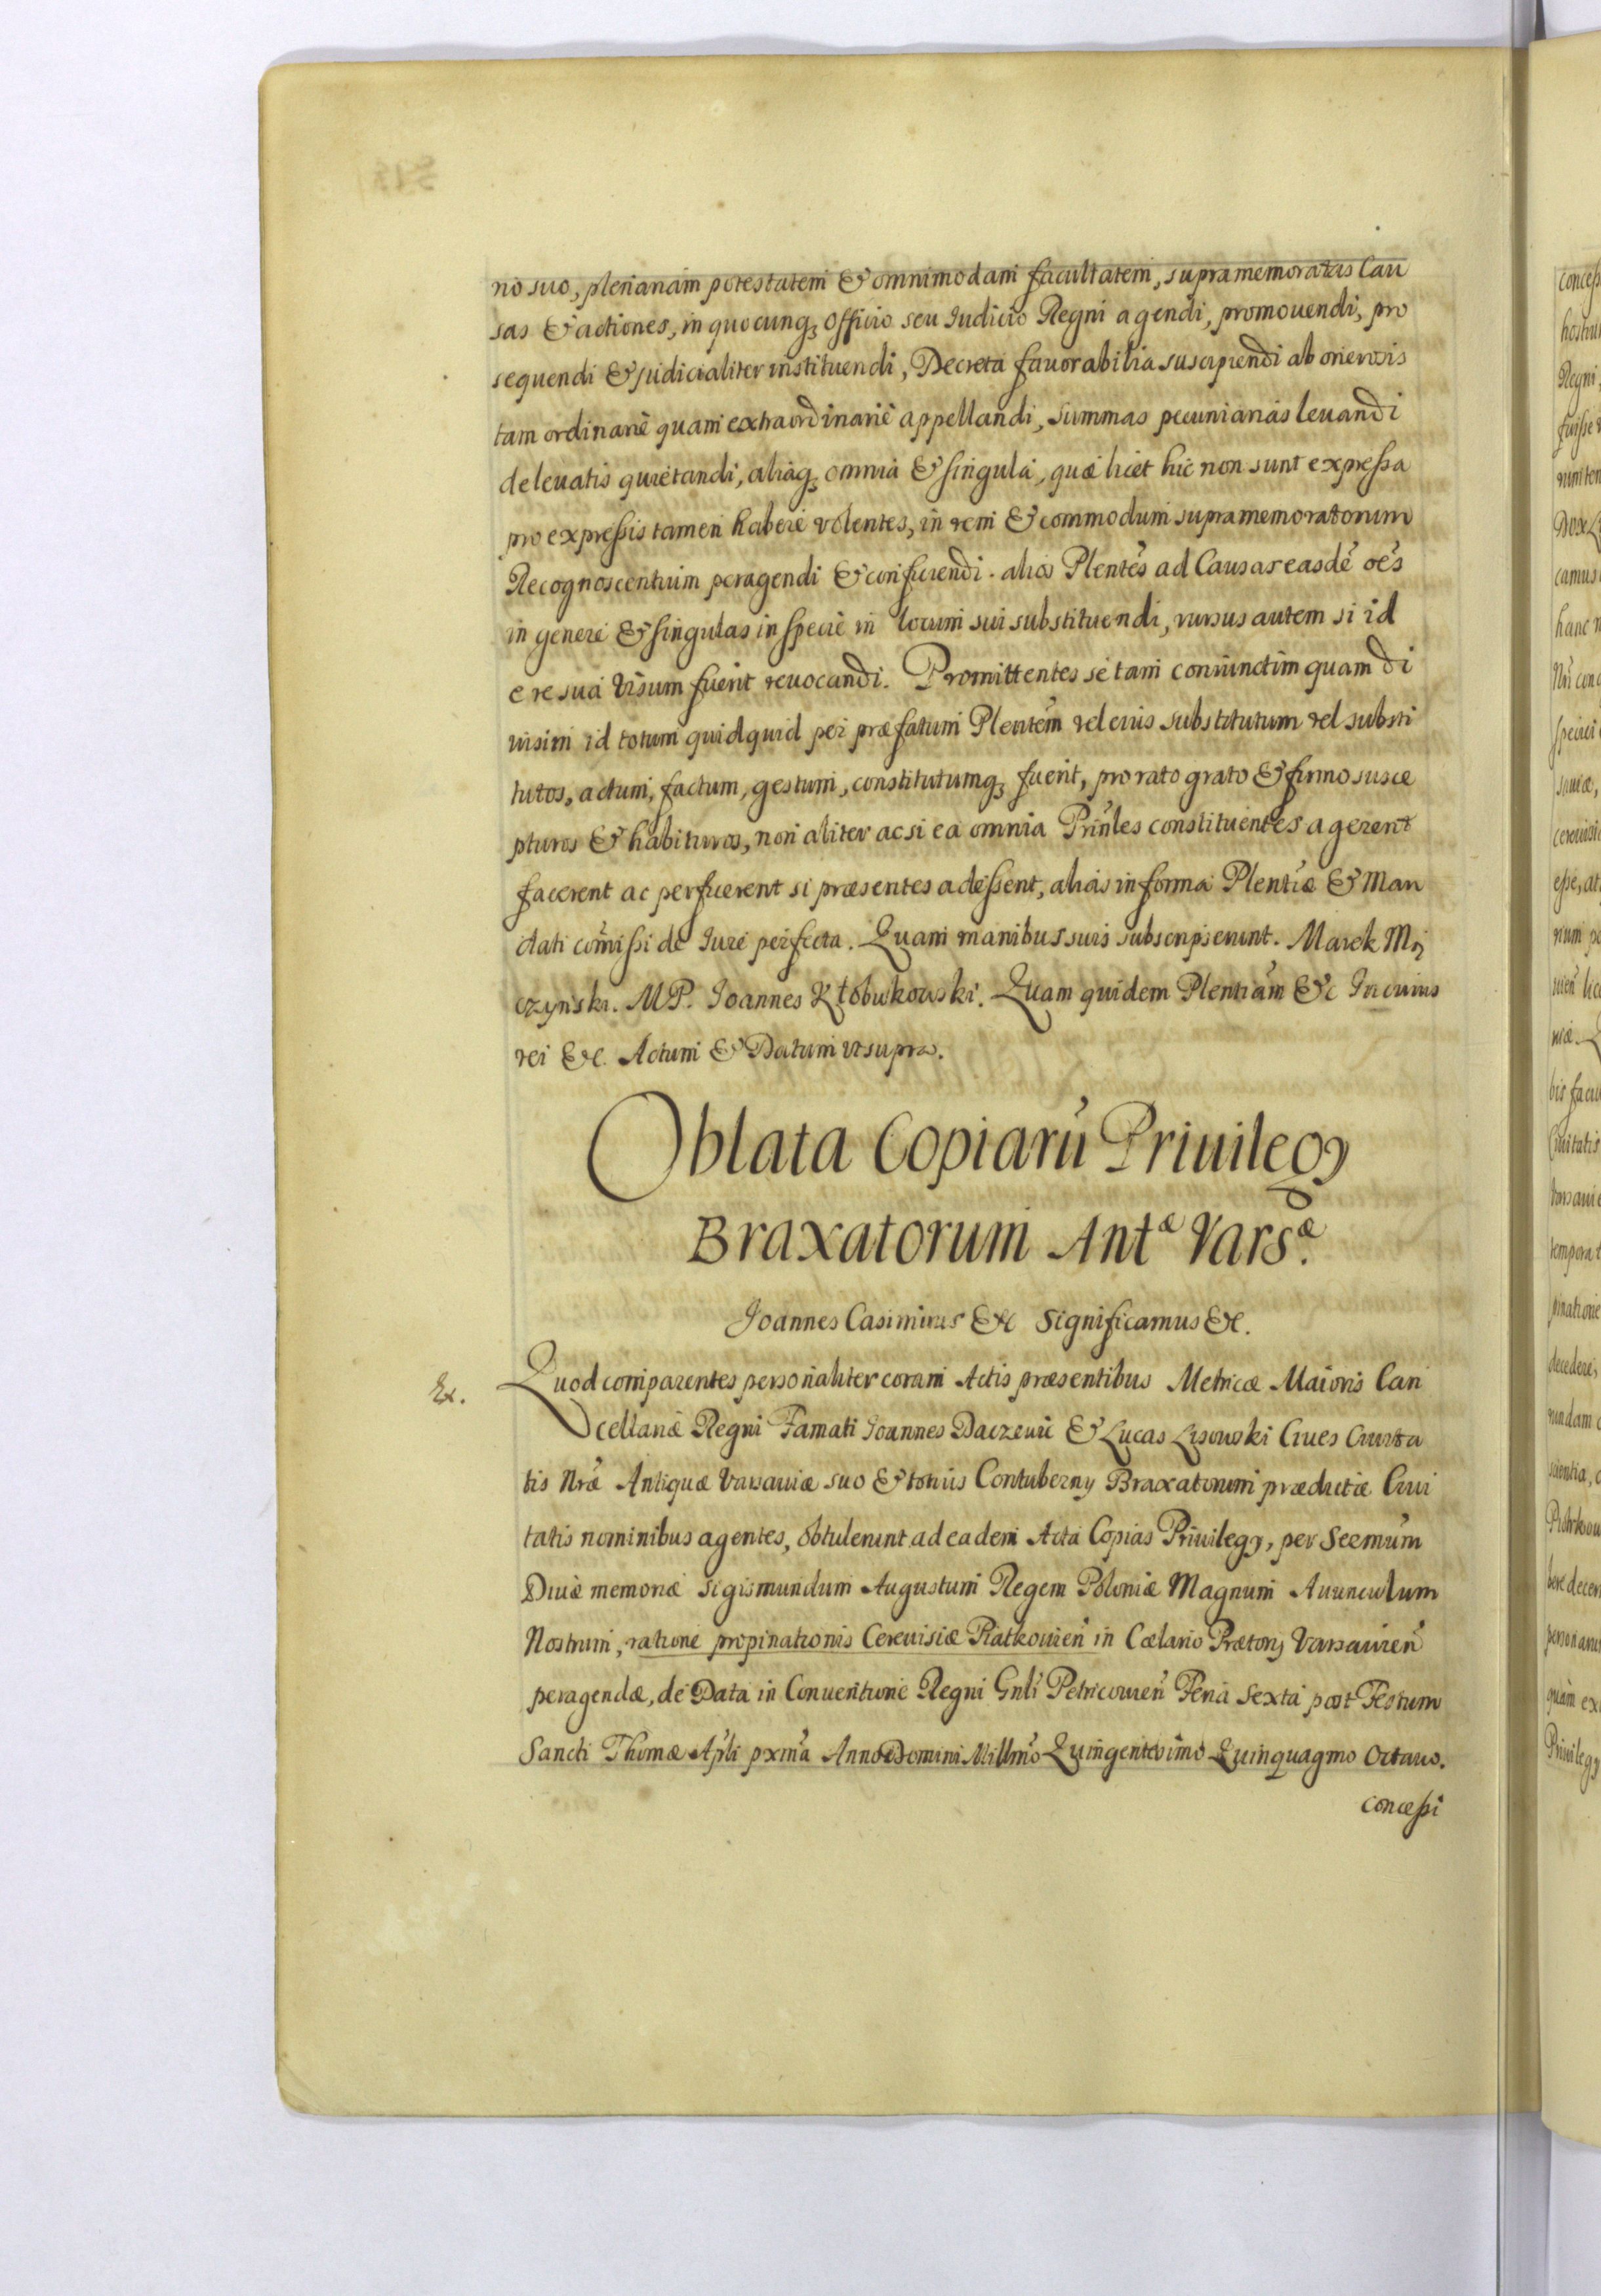 no suo, plenariam potestatem & omnimodam facultatem, supramemoratas Cau
sas & actiones, in quocunq; Officio seu Iudicio Regni agendi, promouendi, pro
sequendi & judicialiter instituendi, Decreta fauorabilia suscipiendi ab onerosis
tam ordinariè quam extraordinariè appellandi, summas pecuniarias leuandi
de leuatis quietandi, aliaq; omnia & singula, quæ licet hic non sunt expressa
pro expressis tamen habere volentes, in rem & commodum supramemoratorum
Recognoscentium peragendi & conficiendi. alios Plentẽs ad Causas easdẽ oẽs
in genere & singulas in specie in locum sui substituendi, rursus autem si id
e re sua visum fuerit reuocandi. Promittentes se tam coniunctim quam di
uisim id totum quidquid per præfatum Plentẽm vel eius substitutum vel substi
tutos, actum, factum, gestum, constitutumq; fuerit, pro rato grato & firmo susce
pturos & habituros, non aliter ac si ea omnia Prinľes constituentes agerent
facerent ac perficerent si præsentes adessent, alias in forma Plentiæ & Man
dati com̃issi de Iure perfecta. Quam manibus suis subscripserunt. Marek Mą
czynski. MP. Ioannes Kłobukowski. Quam quidem Plentiam̃ &c In cuius
rei &c. Actum & Datum vt supra.
Oblata Copiarũ Priuilegij
Braxatorum Antæ Varsæ.
Joannes Casimirus &c Significamus &c.
Ex.
Quod comparentes personaliter coram Actis præsentibus Metricæ Maioris Can
cellariæ Regni Famati Ioannes Daczewic & Lucas Lisowski Ciues Ciuita
tis Nræ̃ Antiquæ Varsauiæ suo & totius Contubernij Braxatorum prædictæ Ciui
tatis nominibus agentes, obtulerunt ad eadem Acta Copias Priuilegij, per Sermũm
Diuæ memoriæ Sigismundum Augustum Regem Poloniæ Magnum Auunculum
Nostrum, ratione propinationis Cereuisiæ Piatkouieñ in Cœlario Prætorij Varsauieñ
peragendæ, de Data in Conuentione Regni Gnli Petricouieñ Feria Sexta post Festum
Sancti Thomæ Apľi pxim̃a Anno Domini Millm̃o Quingentesimo Quinquagmo Octauo.
concessi